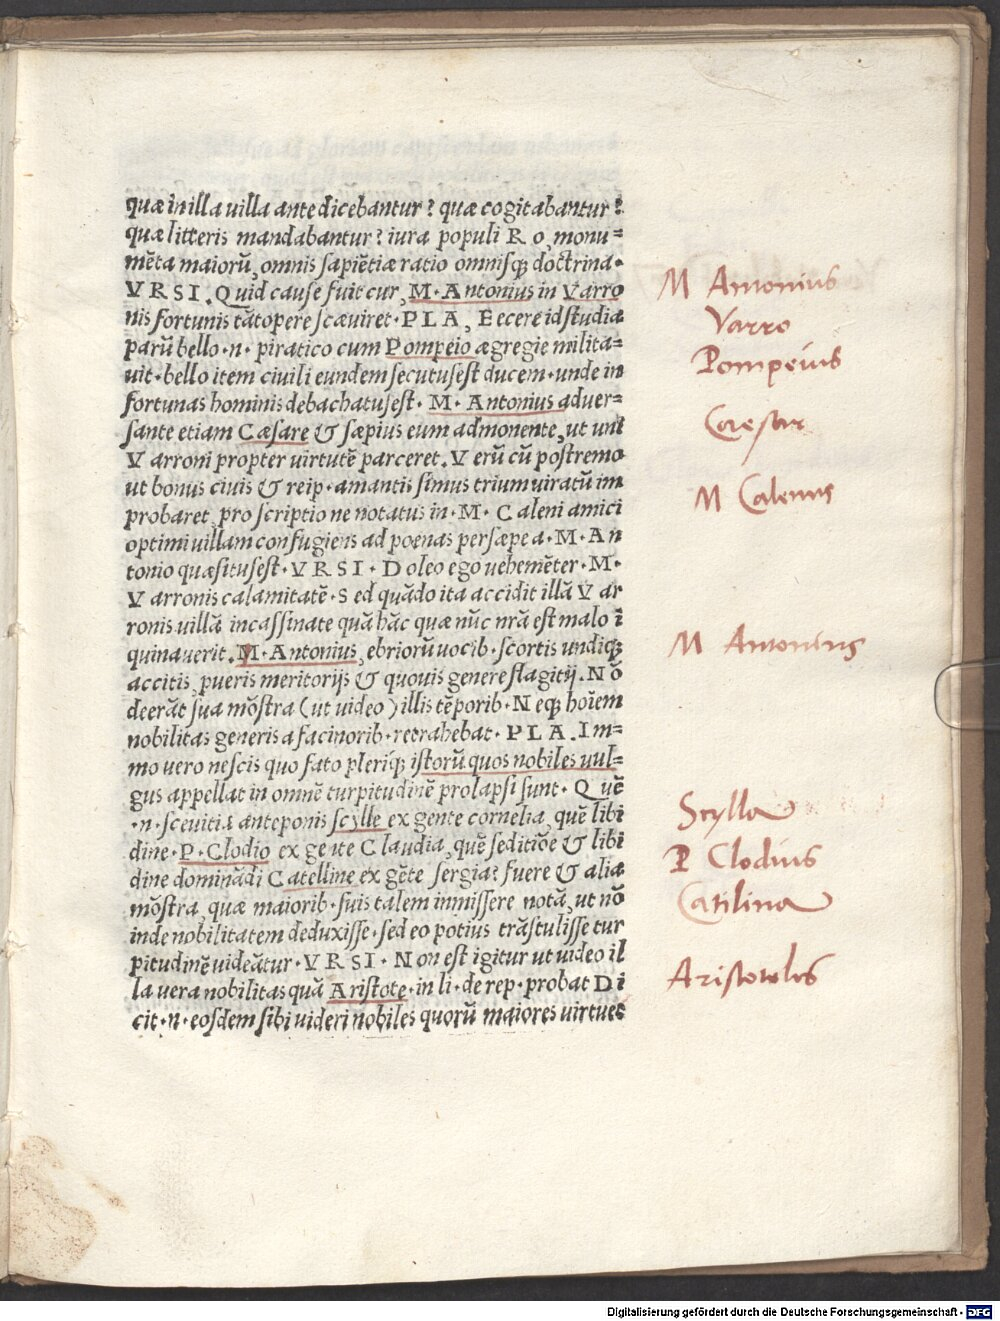 quæ in illa uilla ante dicebantur? quæ cogitabantur?
quæ litteris mandabantur? iura populi R o, monu=
mēta maiorū, omnis sapiētiæ ratio omnisq; doctrina·
VRSI. Quid cause fuit cur, M· Antonius in Varro
nis fortunis tātopere scæuiret· PLA, Fecere id studia
parū bello· n· piratico cum Pompeio ægregie milita=
uit· bello item ciuili eundem secutus est ducem· unde in
fortunas hominis debachatus est· M· Antonius aduer=
sante etiam Cæsare & sæpius eum admonente, ut uni
Varroni propter uirtutē parceret. Verū cū postremo
ut bonus ciuis & reip· amantissimus triumuiratū im
probaret, proscriptione notatus in· M· Caleni amici
optimi uillam confugiens ad poenas persæpe a· M· An
tonio quæsitus est· VRSI· Doleo ego uehemēter· M·
Varronis calamitatē· Sed quādo ita accidit illā Var
ronis uillā incassinate quā hāc quæ nūc nrā est malo ī
quinauerit. M· Antonius, ebriorū uocib· scortis undiq;
accitis, pueris meritorijs & quouis genere flagitij. Nō
deerāt sua mōstra (ut uideo) illis tēporib· Neq; hoīem
nobilitas generis a facinorib· retrahebat· PLA. Im=
mo uero nescis quo fato pleriq; istorū quos nobiles uul=
gus appellat in omnē turpitudinē prolapsi sunt· Quē
·n· sceuitia anteponis scylle ex gente cornelia, quē libi
dine· P· Clodio ex gente Claudia, quē seditiōe & libi
dine domināndi Catelline ex gēte sergia? fuere & alia
mōstra, quæ maiorib· suis talem inmissere notā, ut nō
inde nobilitatem deduxisse· sed eo potius trāstulisse tur
pitudinē uideātur· VRSI· Non est igitur ut uideo il
la uera nobilitas quā Aristote· in li· de rep· probat Di
cit· n· eosdem sibi uideri nobiles quorū maiores uirtutes
M Antonius
Varro
Pompeius
Caesar
M Calenus
M Antonius
Scylla
P Clodius
Catilina
Aristoteles
Digitalisierung gefördert durch die Deutsche Forschungsgemeinschaft - DFG